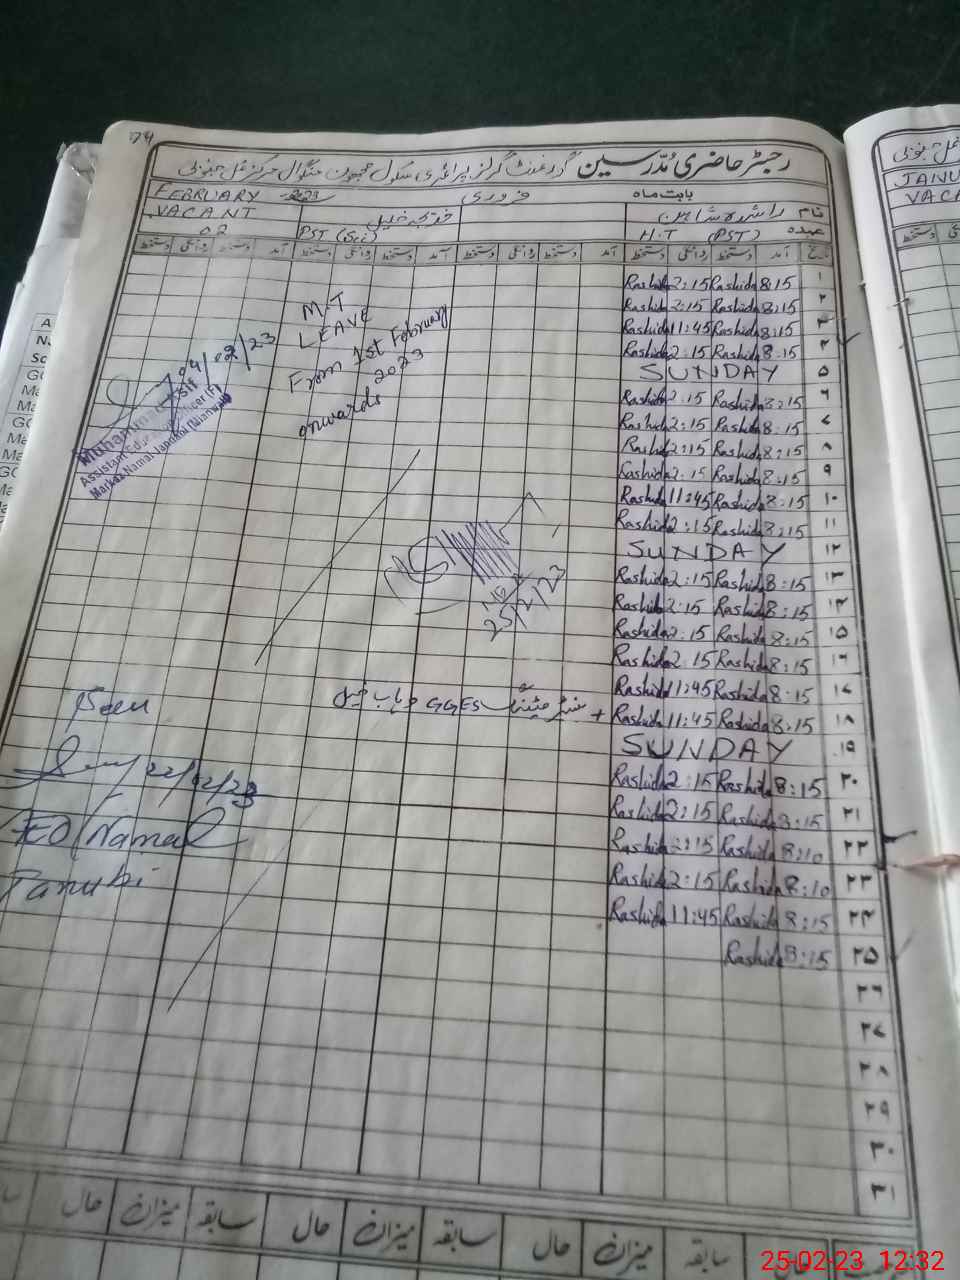 74
رجسٹر حاضری مدرسین گورنمنٹ گرلز پرائمری سکول
بابت ماہ فروری FEBRUARY 2023
نام راشدہ شاہین VACANT
عہدہ H.T (PST) PST (Sci) 02
تاریخ آمد دستخط روانگی دستخط آمد دستخط روانگی دستخط آمد دستخط روانگی دستخط آمد دستخط روانگی دستخط
۱ 8:15 Rashida 2:15 Rashida
۲ 8:15 Rashida 2:15 Rashida
۳ 8:15 Rashida 11:45 Rashida
۴ 8:15 Rashida 2:15 Rashida
۵ SUNDAY
۶ 8:15 Rashida 2:15 Rashida
۷ 8:15 Rashida 2:15 Rashida
۸ 8:15 Rashida 2:15 Rashida
۹ 8:15 Rashida 2:15 Rashida
۱۰ 8:15 Rashida 11:45 Rashida
۱۱ 8:15 Rashida 2:15 Rashida
۱۲ SUNDAY
۱۳ 8:15 Rashida 2:15 Rashida
۱۴ 8:15 Rashida 2:15 Rashida
۱۵ 8:15 Rashida 2:15 Rashida
۱۶ 8:15 Rashida 2:15 Rashida
۱۷ 8:15 Rashida 11:45 Rashida
۱۸ 8:15 Rashida 11:45 Rashida + سنٹر میٹنگ GGES وہاب خیل
۱۹ SUNDAY
۲۰ 8:15 Rashida 2:15 Rashida
۲۱ 8:15 Rashida 2:15 Rashida
۲۲ 8:10 Rashida 2:15 Rashida
۲۳ 8:10 Rashida 2:15 Rashida
۲۴ 8:15 Rashida 11:45 Rashida
۲۵ 8:15 Rashida
۲۶
۲۷
۲۸
۲۹
۳۰
۳۱
M.T
LEAVE
From 1st February
2023
onwards
04/02/23
Muhammad Asif
Assistant Education Officer (F)
Markaz Namal Janobi (Mianwali)
25/2/23
Seen
22/02/23
AEO Namal
Janubi
سابقہ حال میزان سابقہ حال میزان سابقہ حال میزان حال
JANU
VACA
25-02-23 12:32